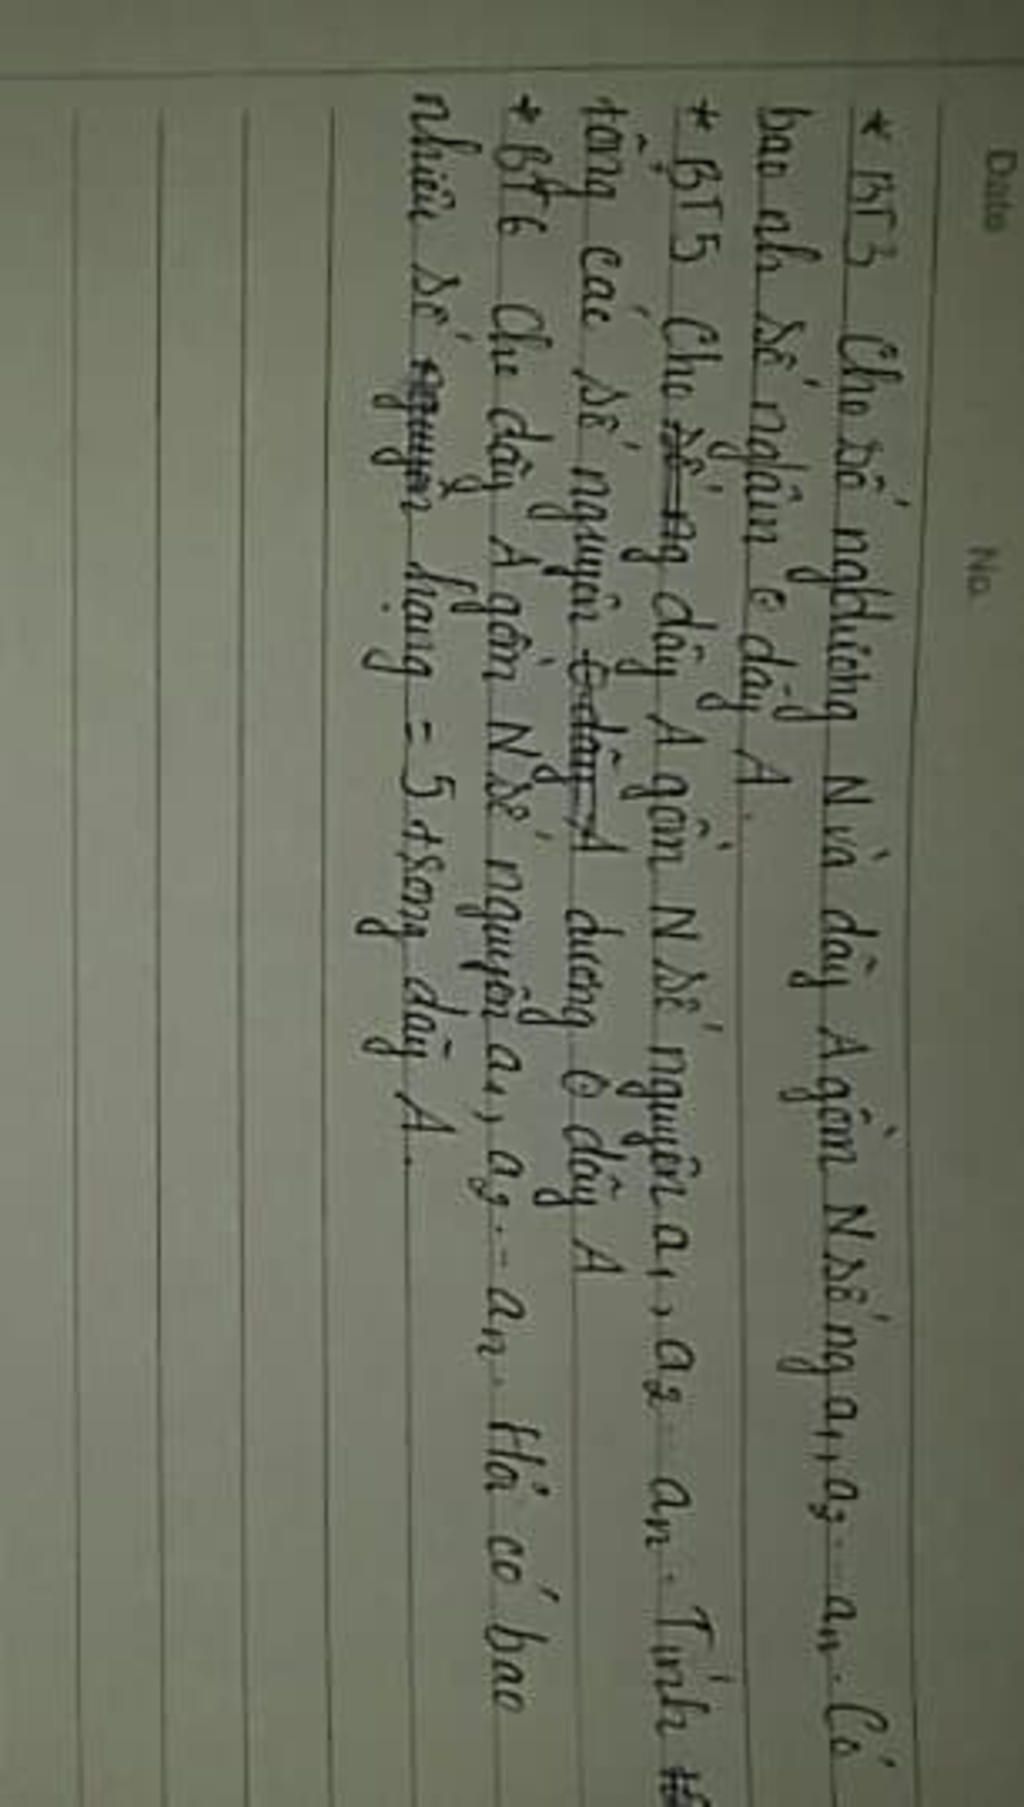 Date No.
* BT3 Cho số ng dương N và dãy A gồm N số ng a1, a2 .. an. Có
bao nh số ng âm ở dãy A.
* BT5 Cho dãy A gồm N số nguyên a1, a2 .. an. Tính
tổng các số nguyên dương ở dãy A
* BT6 Cho dãy A gồm N số nguyên a1, a2 .. - an. Hỏi có bao
nhiêu số hạng = 5 trong dãy A.